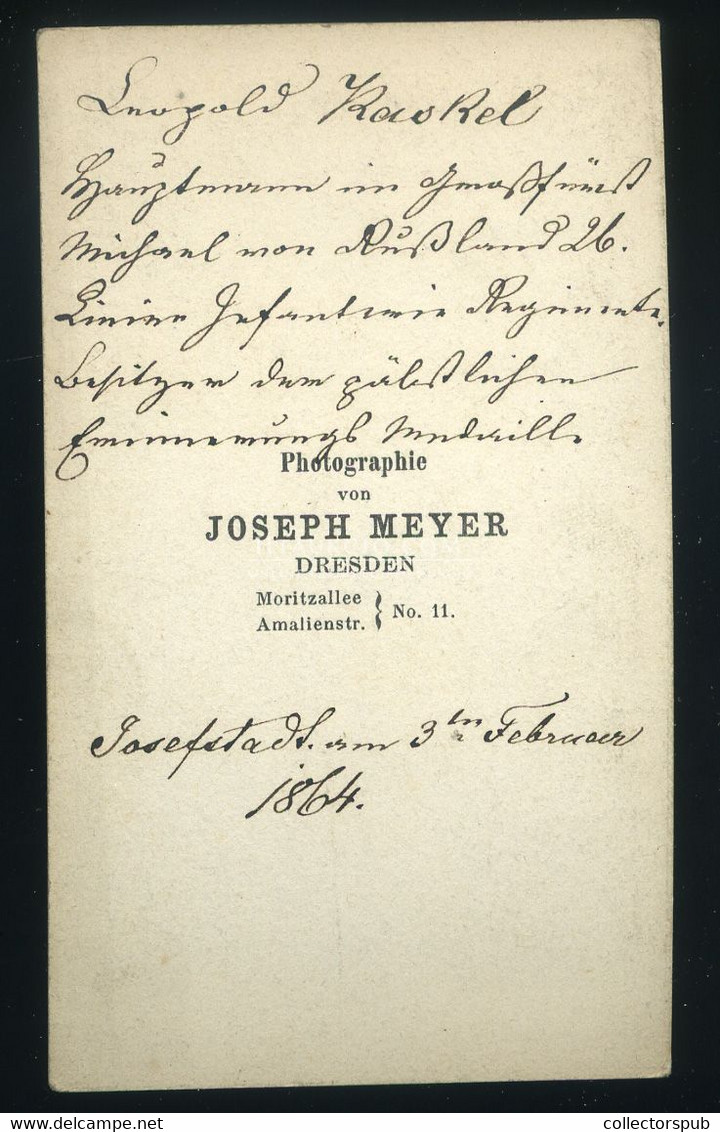 Leopold Kaskel
Hauptmann im Großfürst
Michael von Rußland 26.
Linien Infanterie Regimente.
Besitzer der päbstlichen
Erinnerungs Medaille
Photographie
von
JOSEPH MEYER
DRESDEN
Moritzallee
Amalienstr. } No. 11.
Josefstadt. am 3ten Februar
1864.
delcampe.com
collectorspub